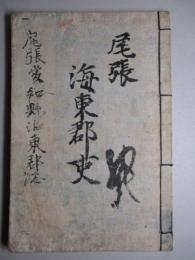 尾張
海東郡史
尾張愛知縣海東郡誌